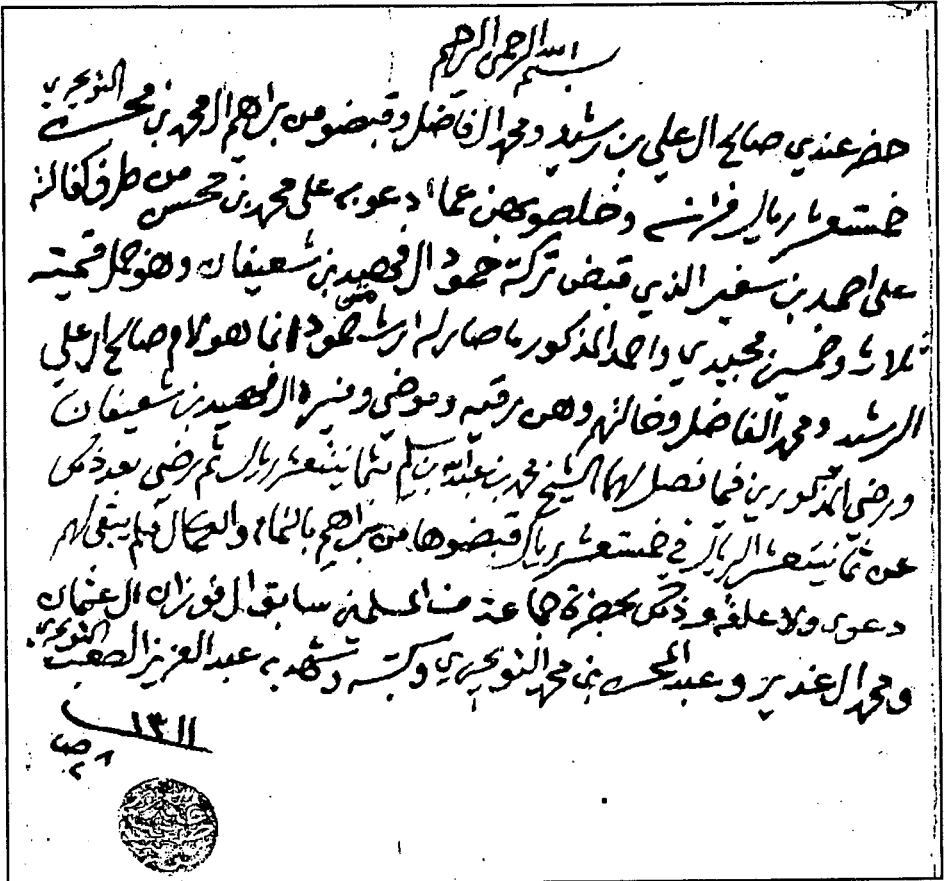 بسم الله الرحمن الرحيم
حضر عندي صالح ال علي بن رشيد ومحمد الفاضل وقبضو من براهم ال محمد بن محسن التويجري
خمستعشر ريال فرانسه وخلصو بهن عما دعو به على محمد بن محسن من طرف كفالته
على احمد بن سفير الذي قبض تركة حمود ال فهيد بن شعيفان وهو جمل قيمته
ثلاث وخمسين مجيدي واحمد المذكور ما صار له ارث من حمود انما هو لام صالح ال علي
الرشيد ومحمد الفاضل وخالتهم وهن رقيه وموضي ومنيره ال فهيد بن شعيفان
ورضي المذكورين فما نصل لهما الشيخ محمد بن عبدالله بن سليم ثمانيتعشر ريال ثم رضى بعد ذلك
عن ثمانيتعشر الريال في خمستعشر ريال قبضوها من براهم بالتمام والكمال فلم يبقى لهم
دعوى ولا علقه وذلك بحضرة جماعة من المسلمين سابق ال فوزان ال عثمان
ومحمد ال غدير وعبد المحسن بن محمد التويجري وكتبه وشهد به عبد العزيز الصعب التويجري
١٣١١
٢٨ ص